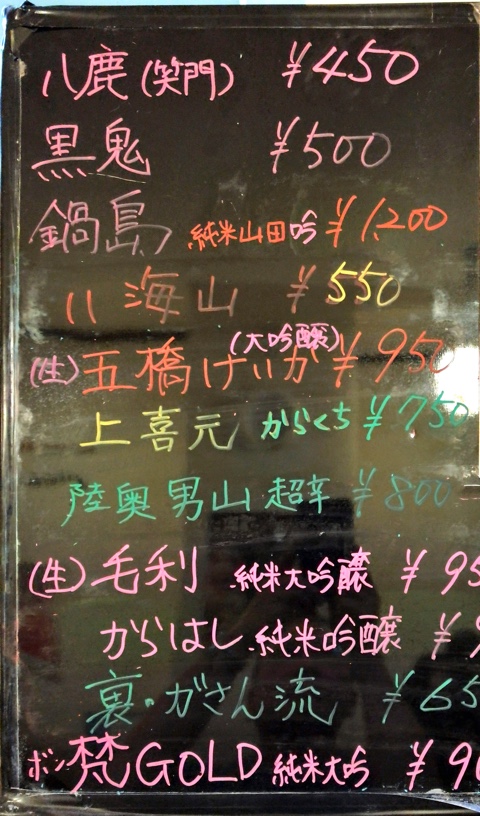 八鹿(笑門) ¥450
黒鬼 ¥500
鍋島 純米山田吟 ¥1,200
八海山 ¥550
(生)五橋けいか(大吟醸) ¥950
上喜元 からくち ¥750
陸奥男山 超辛 ¥800
(生)毛利 純米大吟醸 ¥95
からはし 純米吟醸 ¥9
裏・がさん流 ¥65
ボン梵GOLD 純米大吟 ¥90